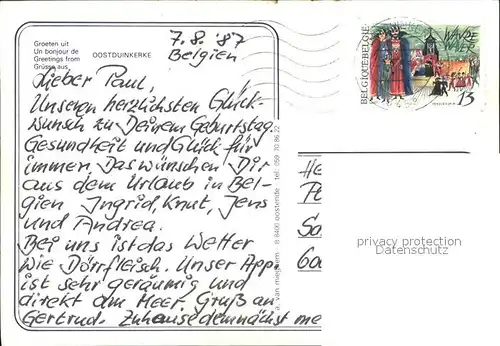 Groeten uit
Un bonjour de
Greetings from
Grüsse aus
OOSTDUINKERKE
7.8.'87
Belgien
Lieber Paul,
Unseren herzlichsten Glück-
wunsch zu Deinem Geburtstag.
Gesundheit und Glück für
immer. Das wünschen Dir
aus dem Urlaub in Bel-
gien Ingrid, Knut, Jens
und Andrea.
Bei uns ist das Wetter
wie Dörrfleisch. Unser App.
ist sehr geräumig und
direkt am Meer. Gruß an
Gertrud. Zuhause demnächst me
a. van mieghem 8 8400 oostende tel. 059 70 86 22
BELGIQUE·BELGIË
13
He
Pe
Sa
60
privacy protection
Datenschutz